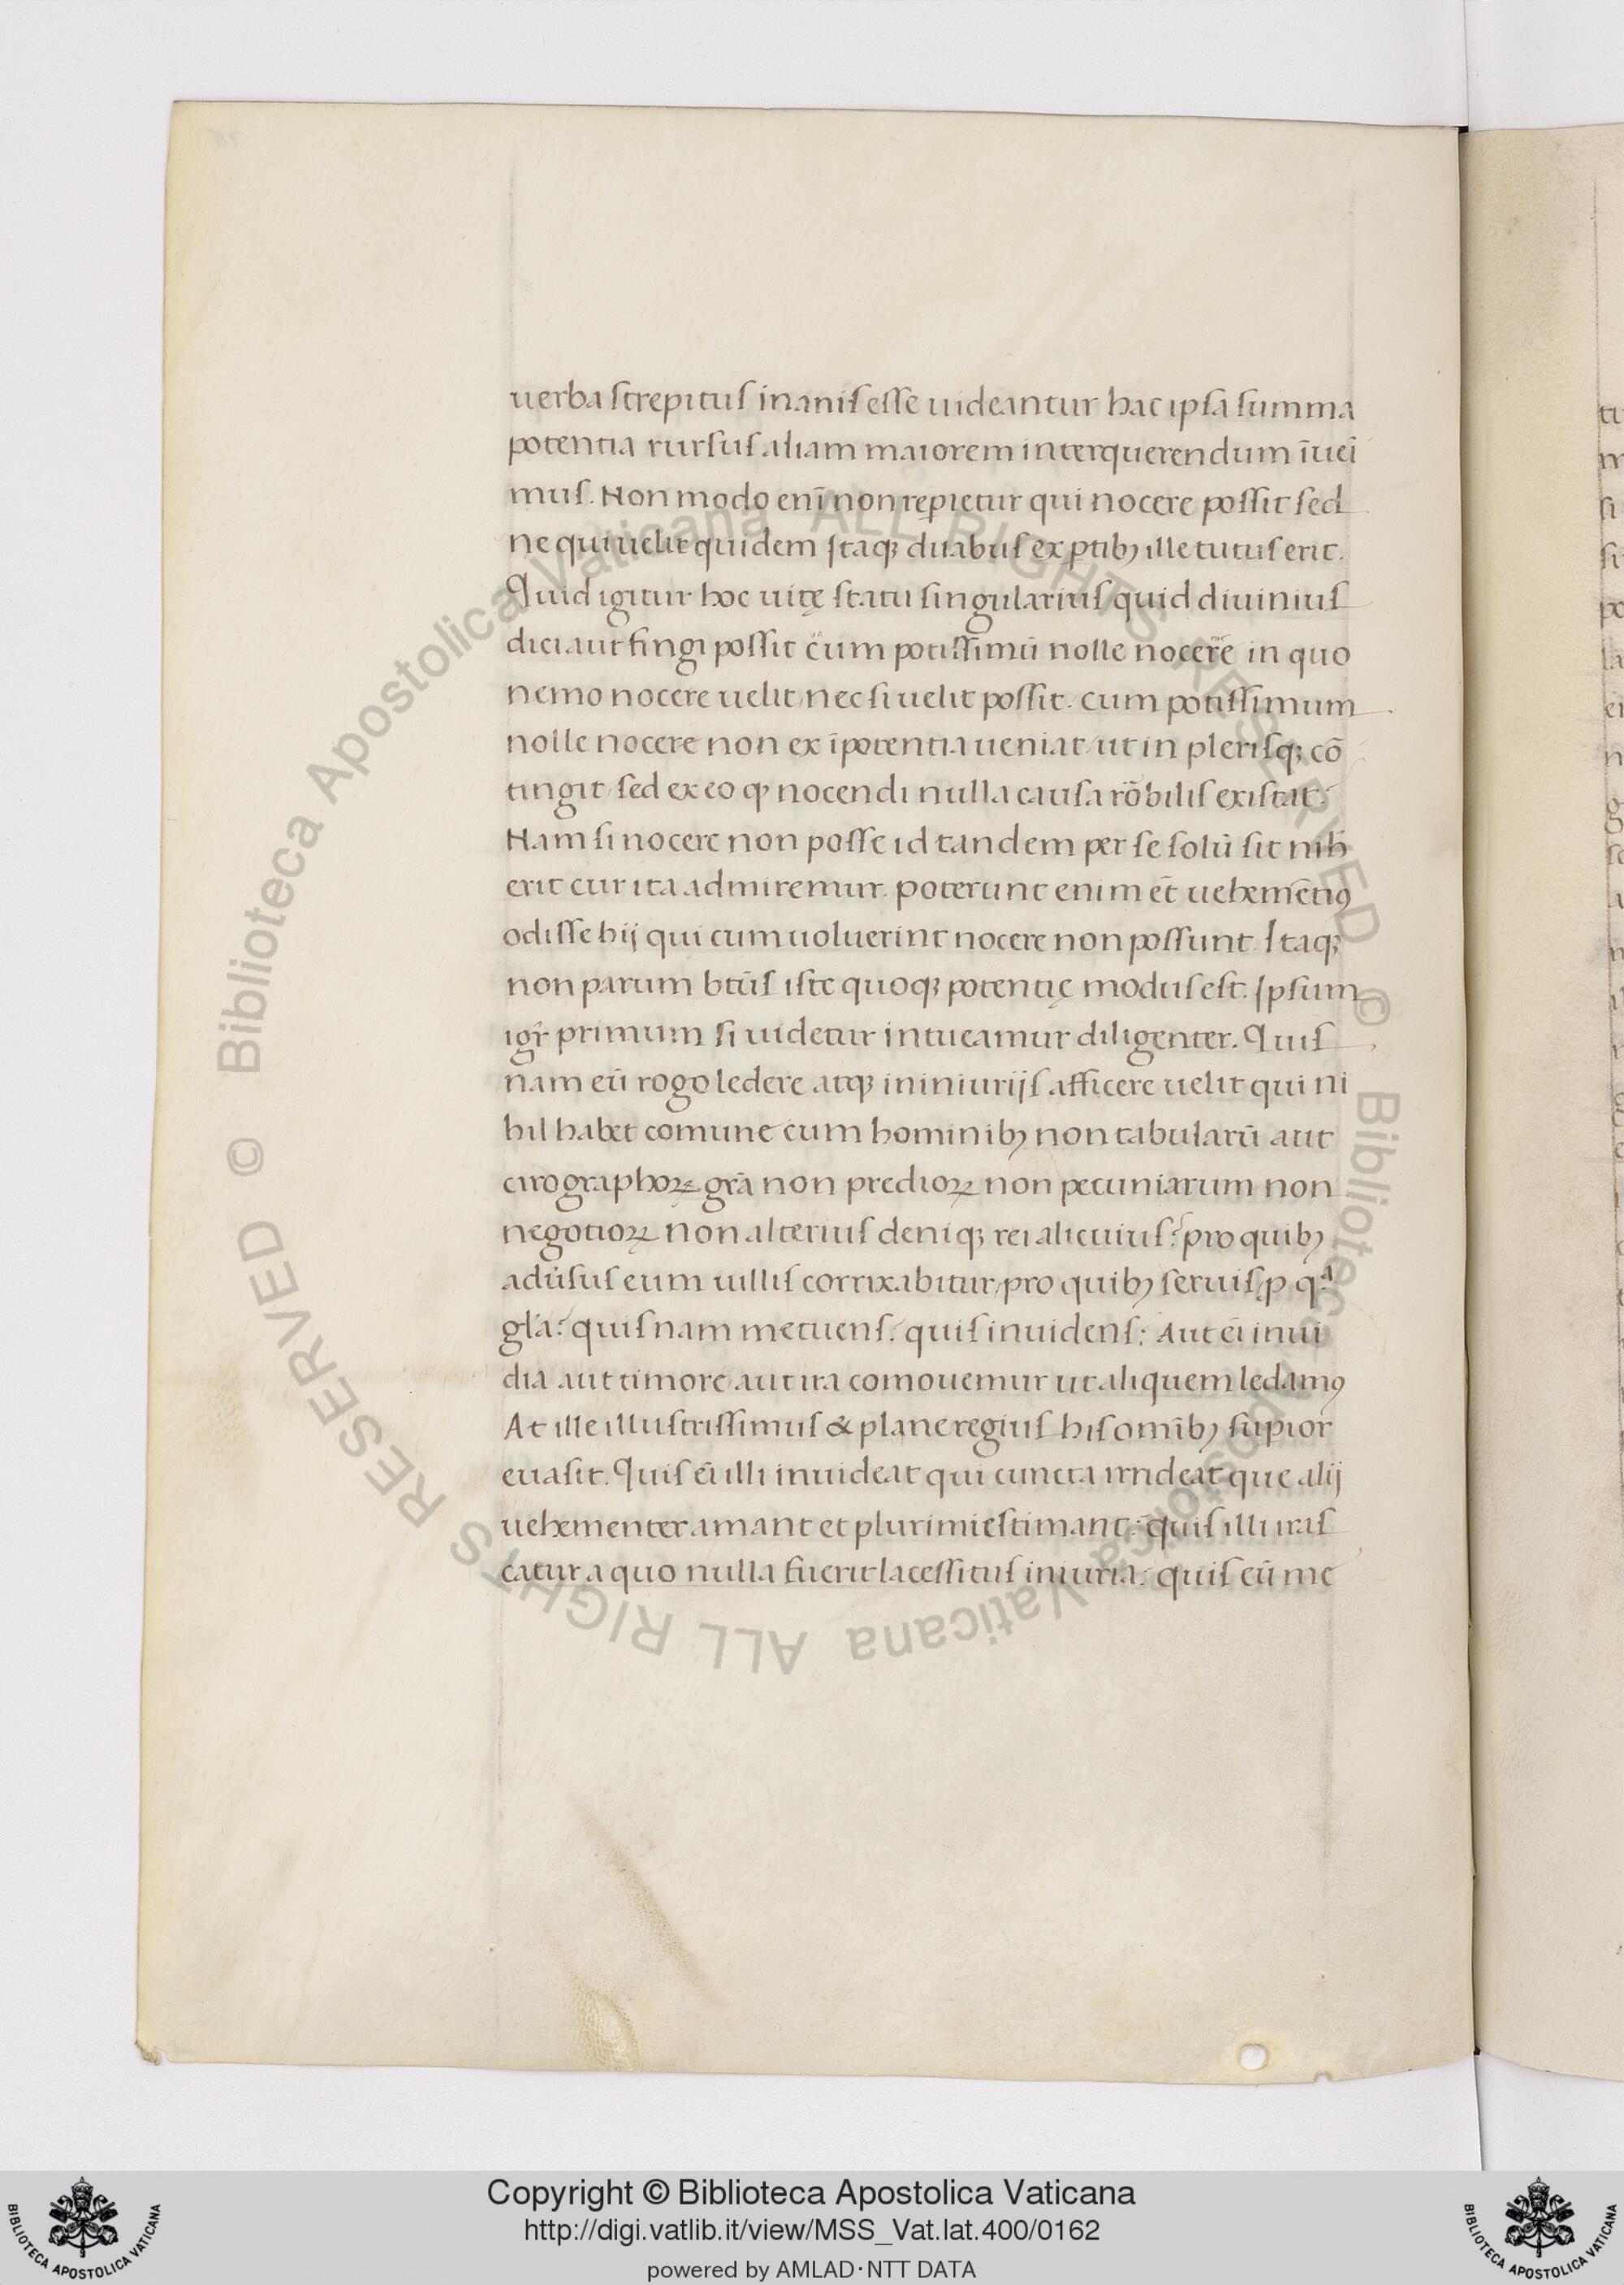 uerba strepitus inanis esse uideantur hac ipsa summa
potentia rursus aliam maiorem inter querendum īueī
mus. Non modo enī non repietur qui nocere possit sed
ne qui uelit quidem Itaqꝫ duabus ex ꝑtibꝫ ille tutus erit.
Quid igitur hoc uitę statu singularius quid diuinius
dici aut fingi possit cum potissimū nolle nocere in quo
nemo nocere uelit / nec si uelit possit. cum potissimum
nolle nocere non ex īpotentia ueniat / ut in plerisqꝫ cō
tingit / sed ex eo ꝙ nocendi nulla causa rōbilis existat.
Nam si nocere non posse id tandem per se solū sit nih̄
erit cur ita admiremur. poterunt enim et̄ uehemētiꝰ
odisse hij qui cum uoluerint nocere non possunt. Itaqꝫ
non parum btūs iste quoqꝫ potentię modus est. Ipsum
igr̄ primum si uidetur intueamur diligenter. Quis
nam eū rogo ledere atqꝫ in iniurijs afficere uelit qui ni
hil habet comune cum hominibꝫ non tabularū aut
cirographoꝝ grā non predioꝝ non pecuniarum non
negotioꝝ non alterius deniqꝫ rei alicuius? pro quibꝫ
adūsus eum uillis corrixabitur / pro quibꝫ seruis / ꝓ qᵃ
glā? quis nam metuens? quis inuidens? Aut eī inui
dia aut timore aut ira comouemur ut aliquem ledamꝰ
At ille illustrissimus & plane regius his omībꝫ supior
euasit. Quis eī illi inuideat qui cuncta irrideat que alij
uehementer amant et plurimi estimant? quis illi iras
catur a quo nulla fuerit lacessitus iniuria? quis eū me
Copyright © Biblioteca Apostolica Vaticana
http://digi.vatlib.it/view/MSS_Vat.lat.400/0162
powered by AMLAD·NTT DATA
BIBLIOTECA APOSTOLICA VATICANA
BIBLIOTECA APOSTOLICA VATICANA
© Biblioteca Apostolica Vaticana ALL RIGHTS RESERVED
© Biblioteca Apostolica Vaticana ALL RIGHTS RESERVED